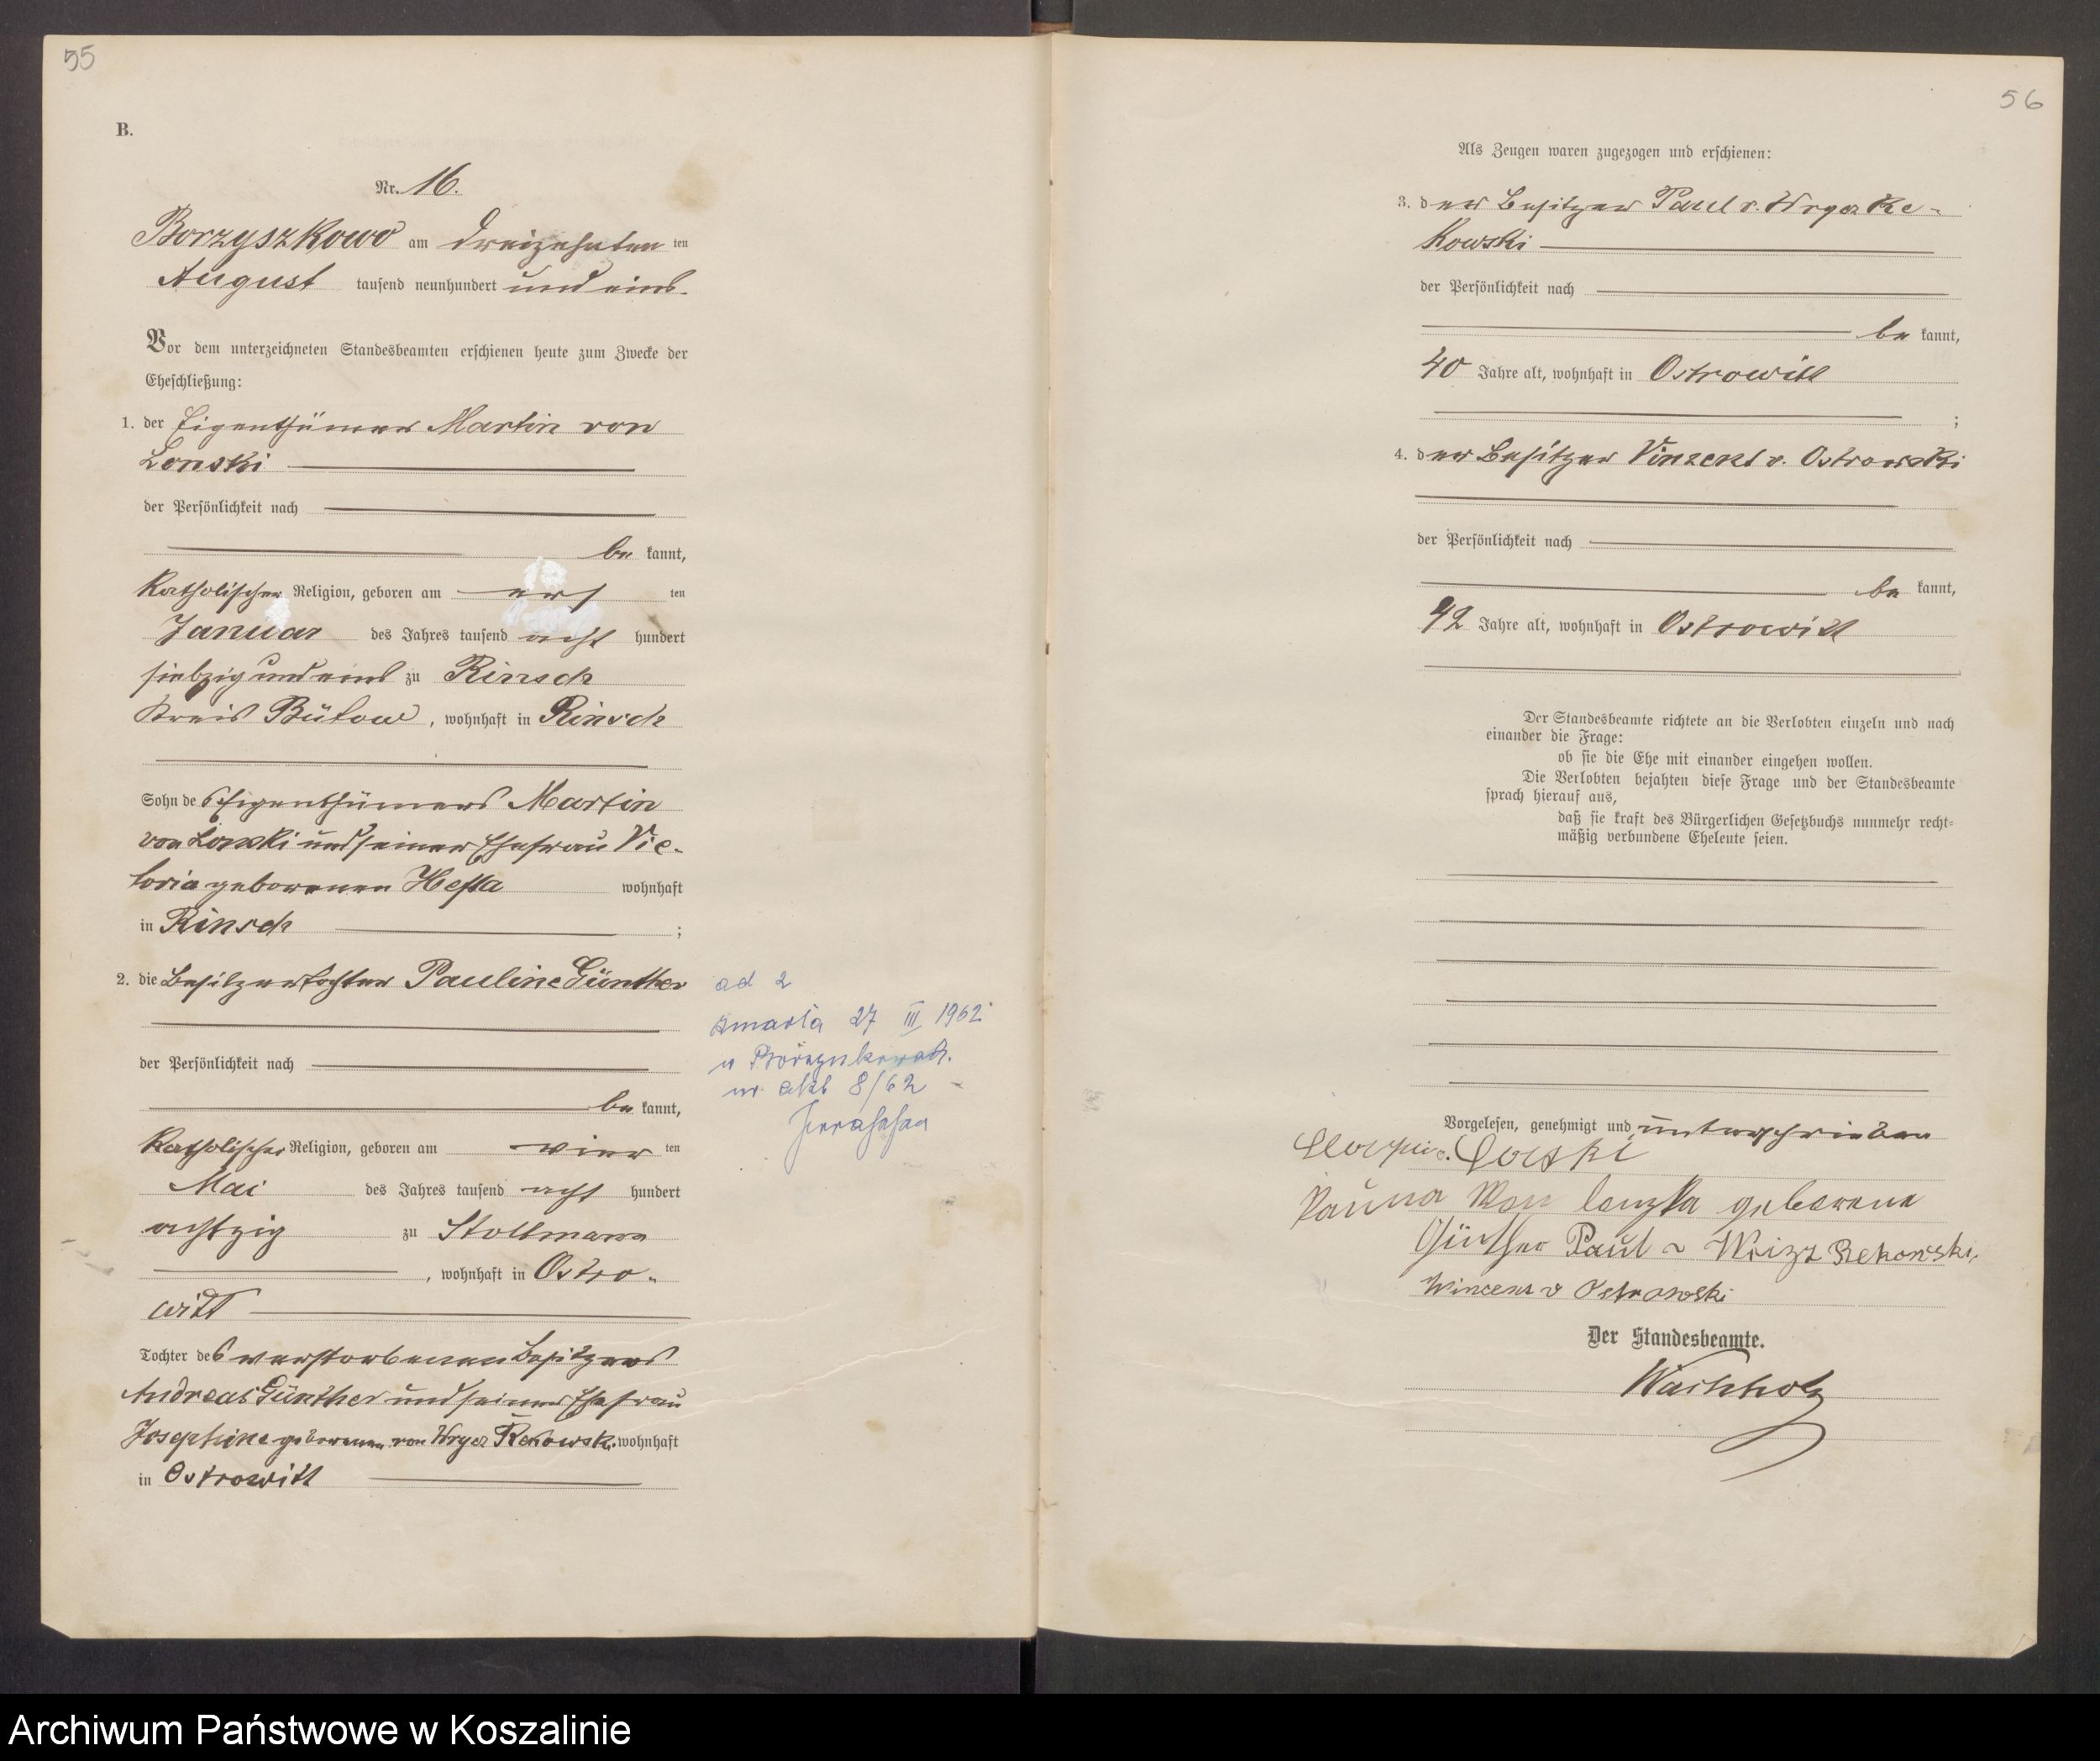 55
B.
Nr. 16.
Borzyszkowo am dreizehnten ten
August tausend neunhundert und eins.
Vor dem unterzeichneten Standesbeamten erschienen heute zum Zwecke der
Eheschließung:
1. der Eigenthümer Martin von
Lonski
der Persönlichkeit nach
be kannt,
Katholischer Religion, geboren am erst ten
Januar des Jahres tausend acht hundert
siebzig und eins zu Rinsch
Kreis Bütow, wohnhaft in Rinsch
Sohn des Eigenthümers Martin
von Lonski und seiner Ehefrau Vic-
toria geborenen Hefta wohnhaft
in Rinsch ;
2. die Besitzertochter Pauline Günther
der Persönlichkeit nach
be kannt,
Katholischer Religion, geboren am vier ten
Mai des Jahres tausend acht hundert
achtzig zu Stoltmann
, wohnhaft in Ostro-
witt
Tochter des verstorbenen Besitzers
Andreas Günther und seiner Ehefrau
Josephine geborenen von Wrycz Rekowski wohnhaft
in Ostrowitt
ad 2
zmarła 27 III 1962
w
nr. aktu 8/62
56
Als Zeugen waren zugezogen und erschienen:
3. der Besitzer Paul v. Wrycz Re-
kowski
der Persönlichkeit nach
be kannt,
40 Jahre alt, wohnhaft in Ostrowitt
;
4. der Besitzer Vinzent v. Ostrowski
der Persönlichkeit nach
be kannt,
42 Jahre alt, wohnhaft in Ostrowitt
Der Standesbeamte richtete an die Verlobten einzeln und nach
einander die Frage:
ob sie die Ehe mit einander eingehen wollen.
Die Verlobten bejahten diese Frage und der Standesbeamte
sprach hierauf aus,
daß sie kraft des Bürgerlichen Gesetzbuchs nunmehr recht-
mäßig verbundene Eheleute seien.
Vorgelesen, genehmigt und unterschrieben
v. Lonski
von geborene
Günther Paul v Rekowski
Wincent v Ostrowski
Der Standesbeamte.
Wachholz
Archiwum Państwowe w Koszalinie